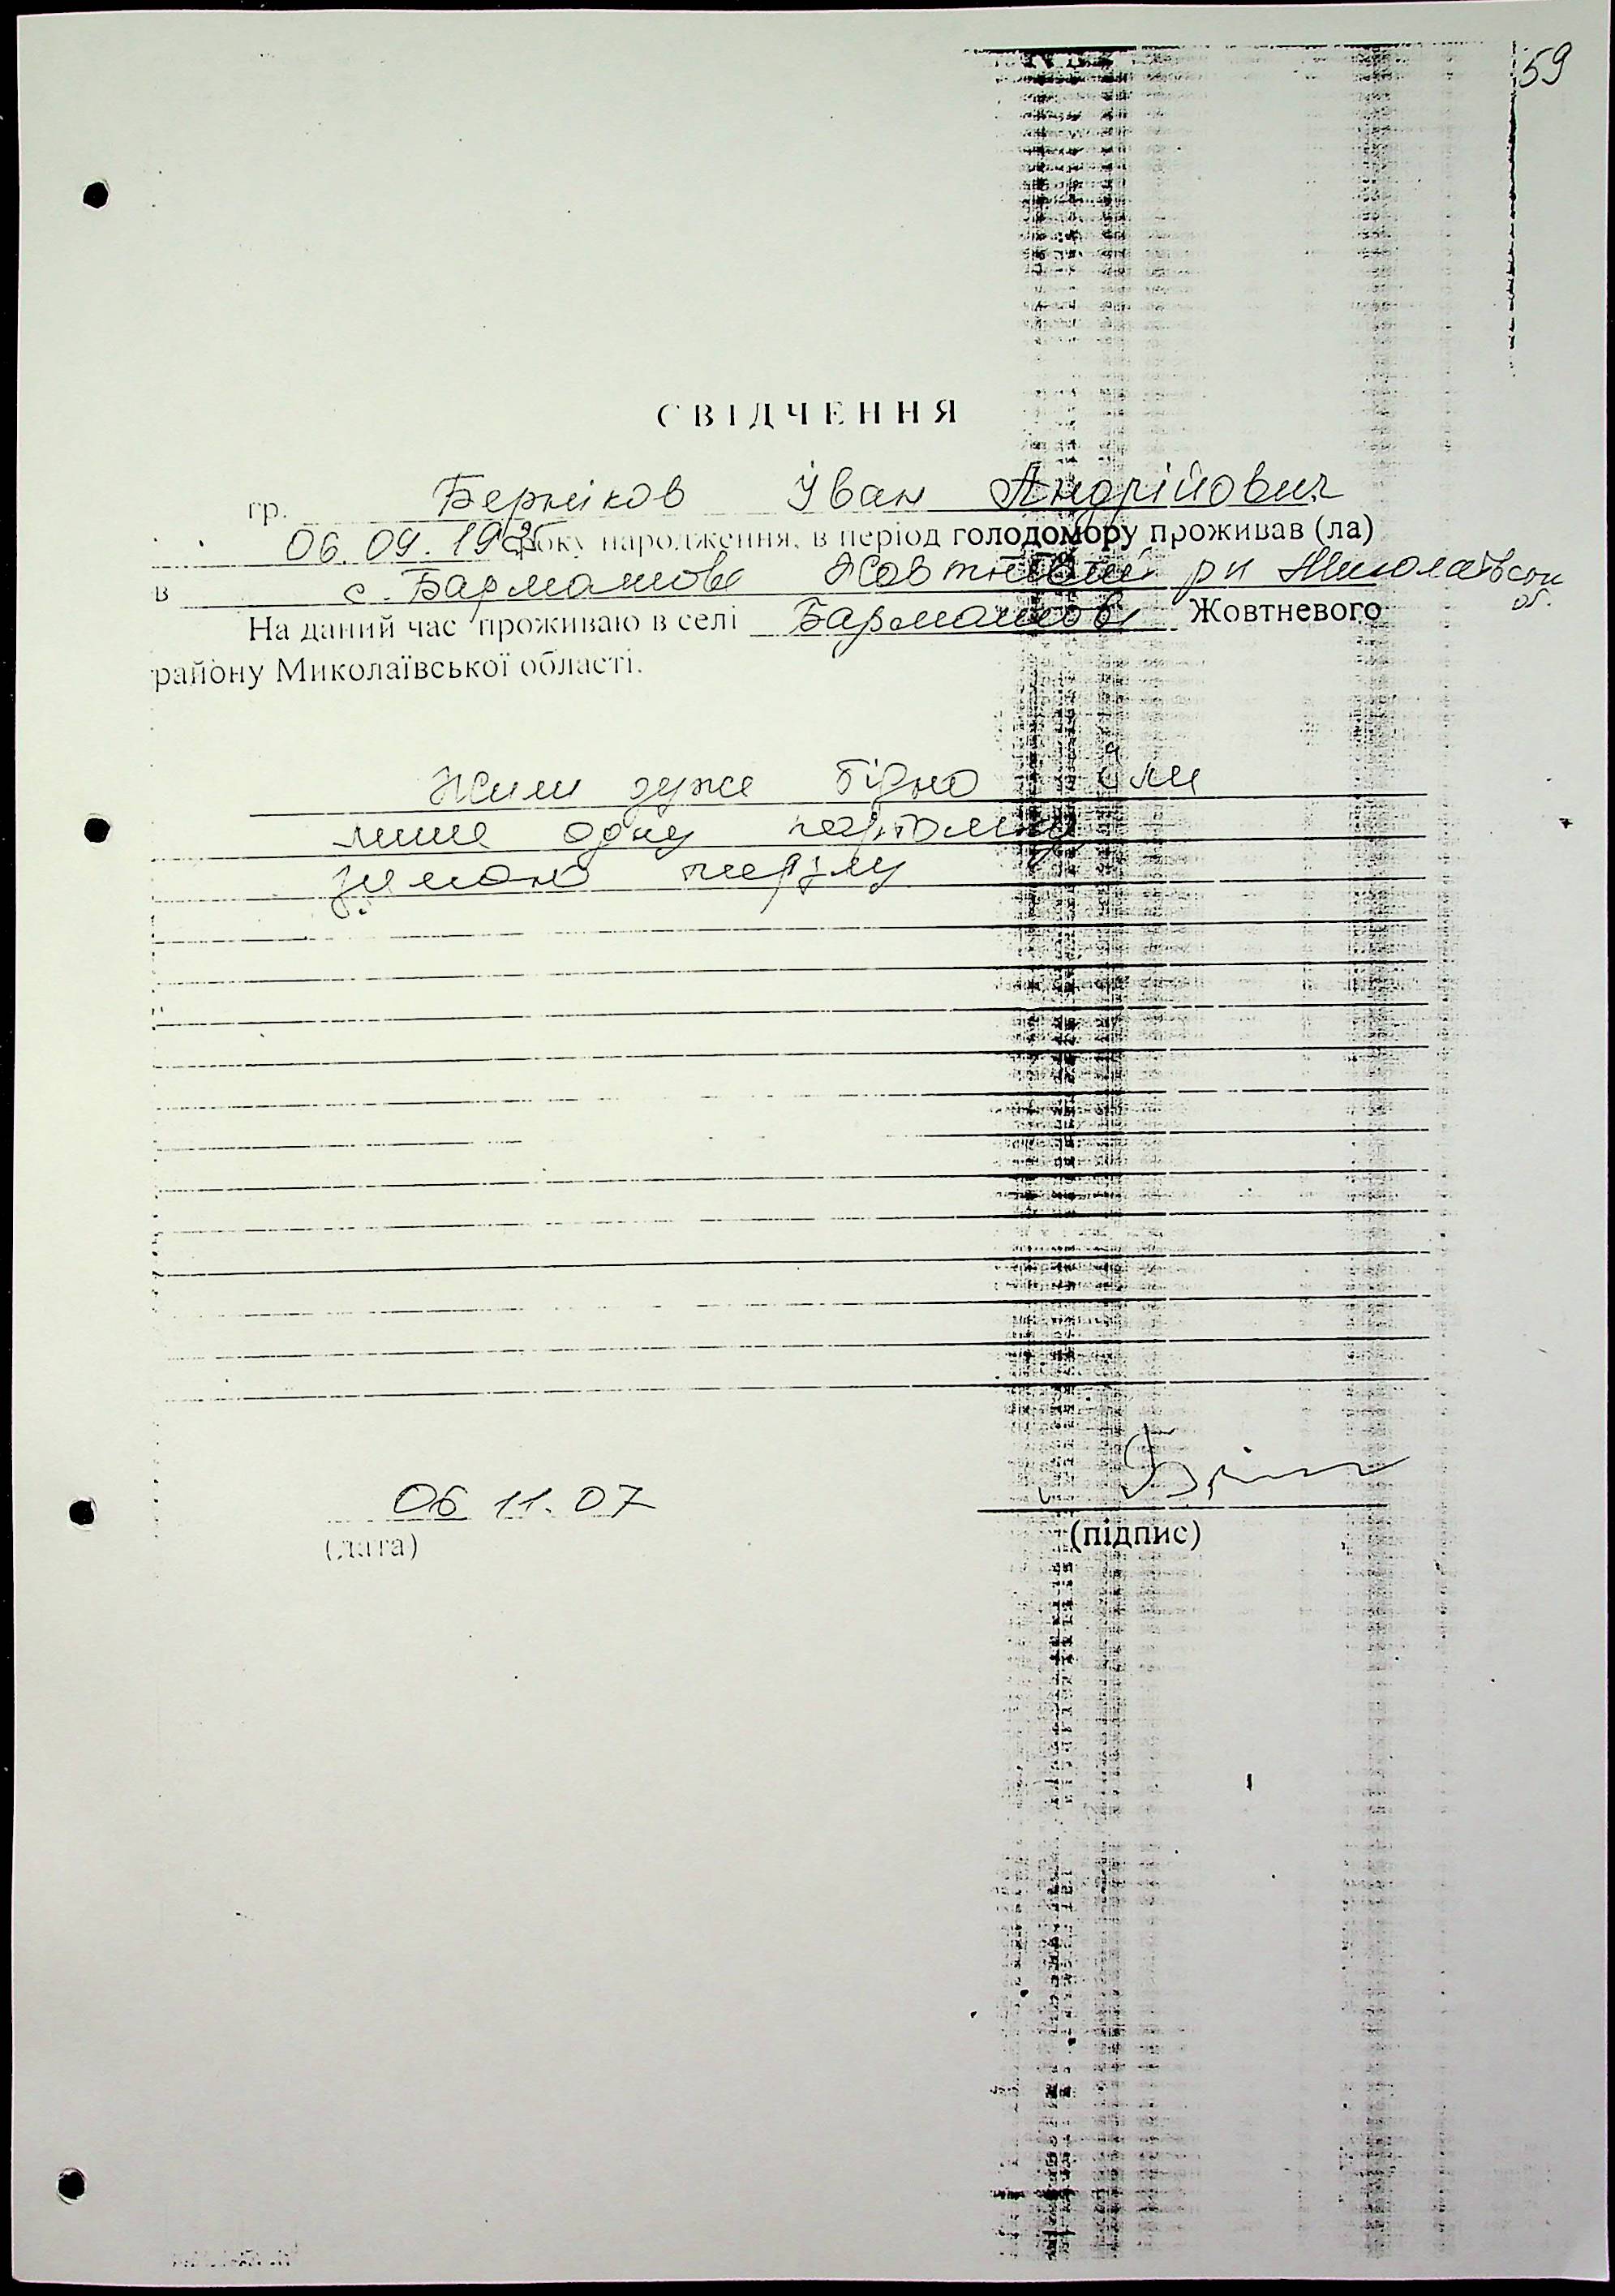 59
СВІДЧЕННЯ
гр. Берніков Іван Андрійович
06.09.1925 року народження, в період голодомору проживав (ла)
в с. Бармашове Жовтневий рн Миколаївсьн
об.
На даний час проживаю в селі Бармашове Жовтневого
району Миколаївської області.
Жили дуже бідно їли
лише одну картоплю
зимою мерзлу
06 11.07
(дата) (підпис)